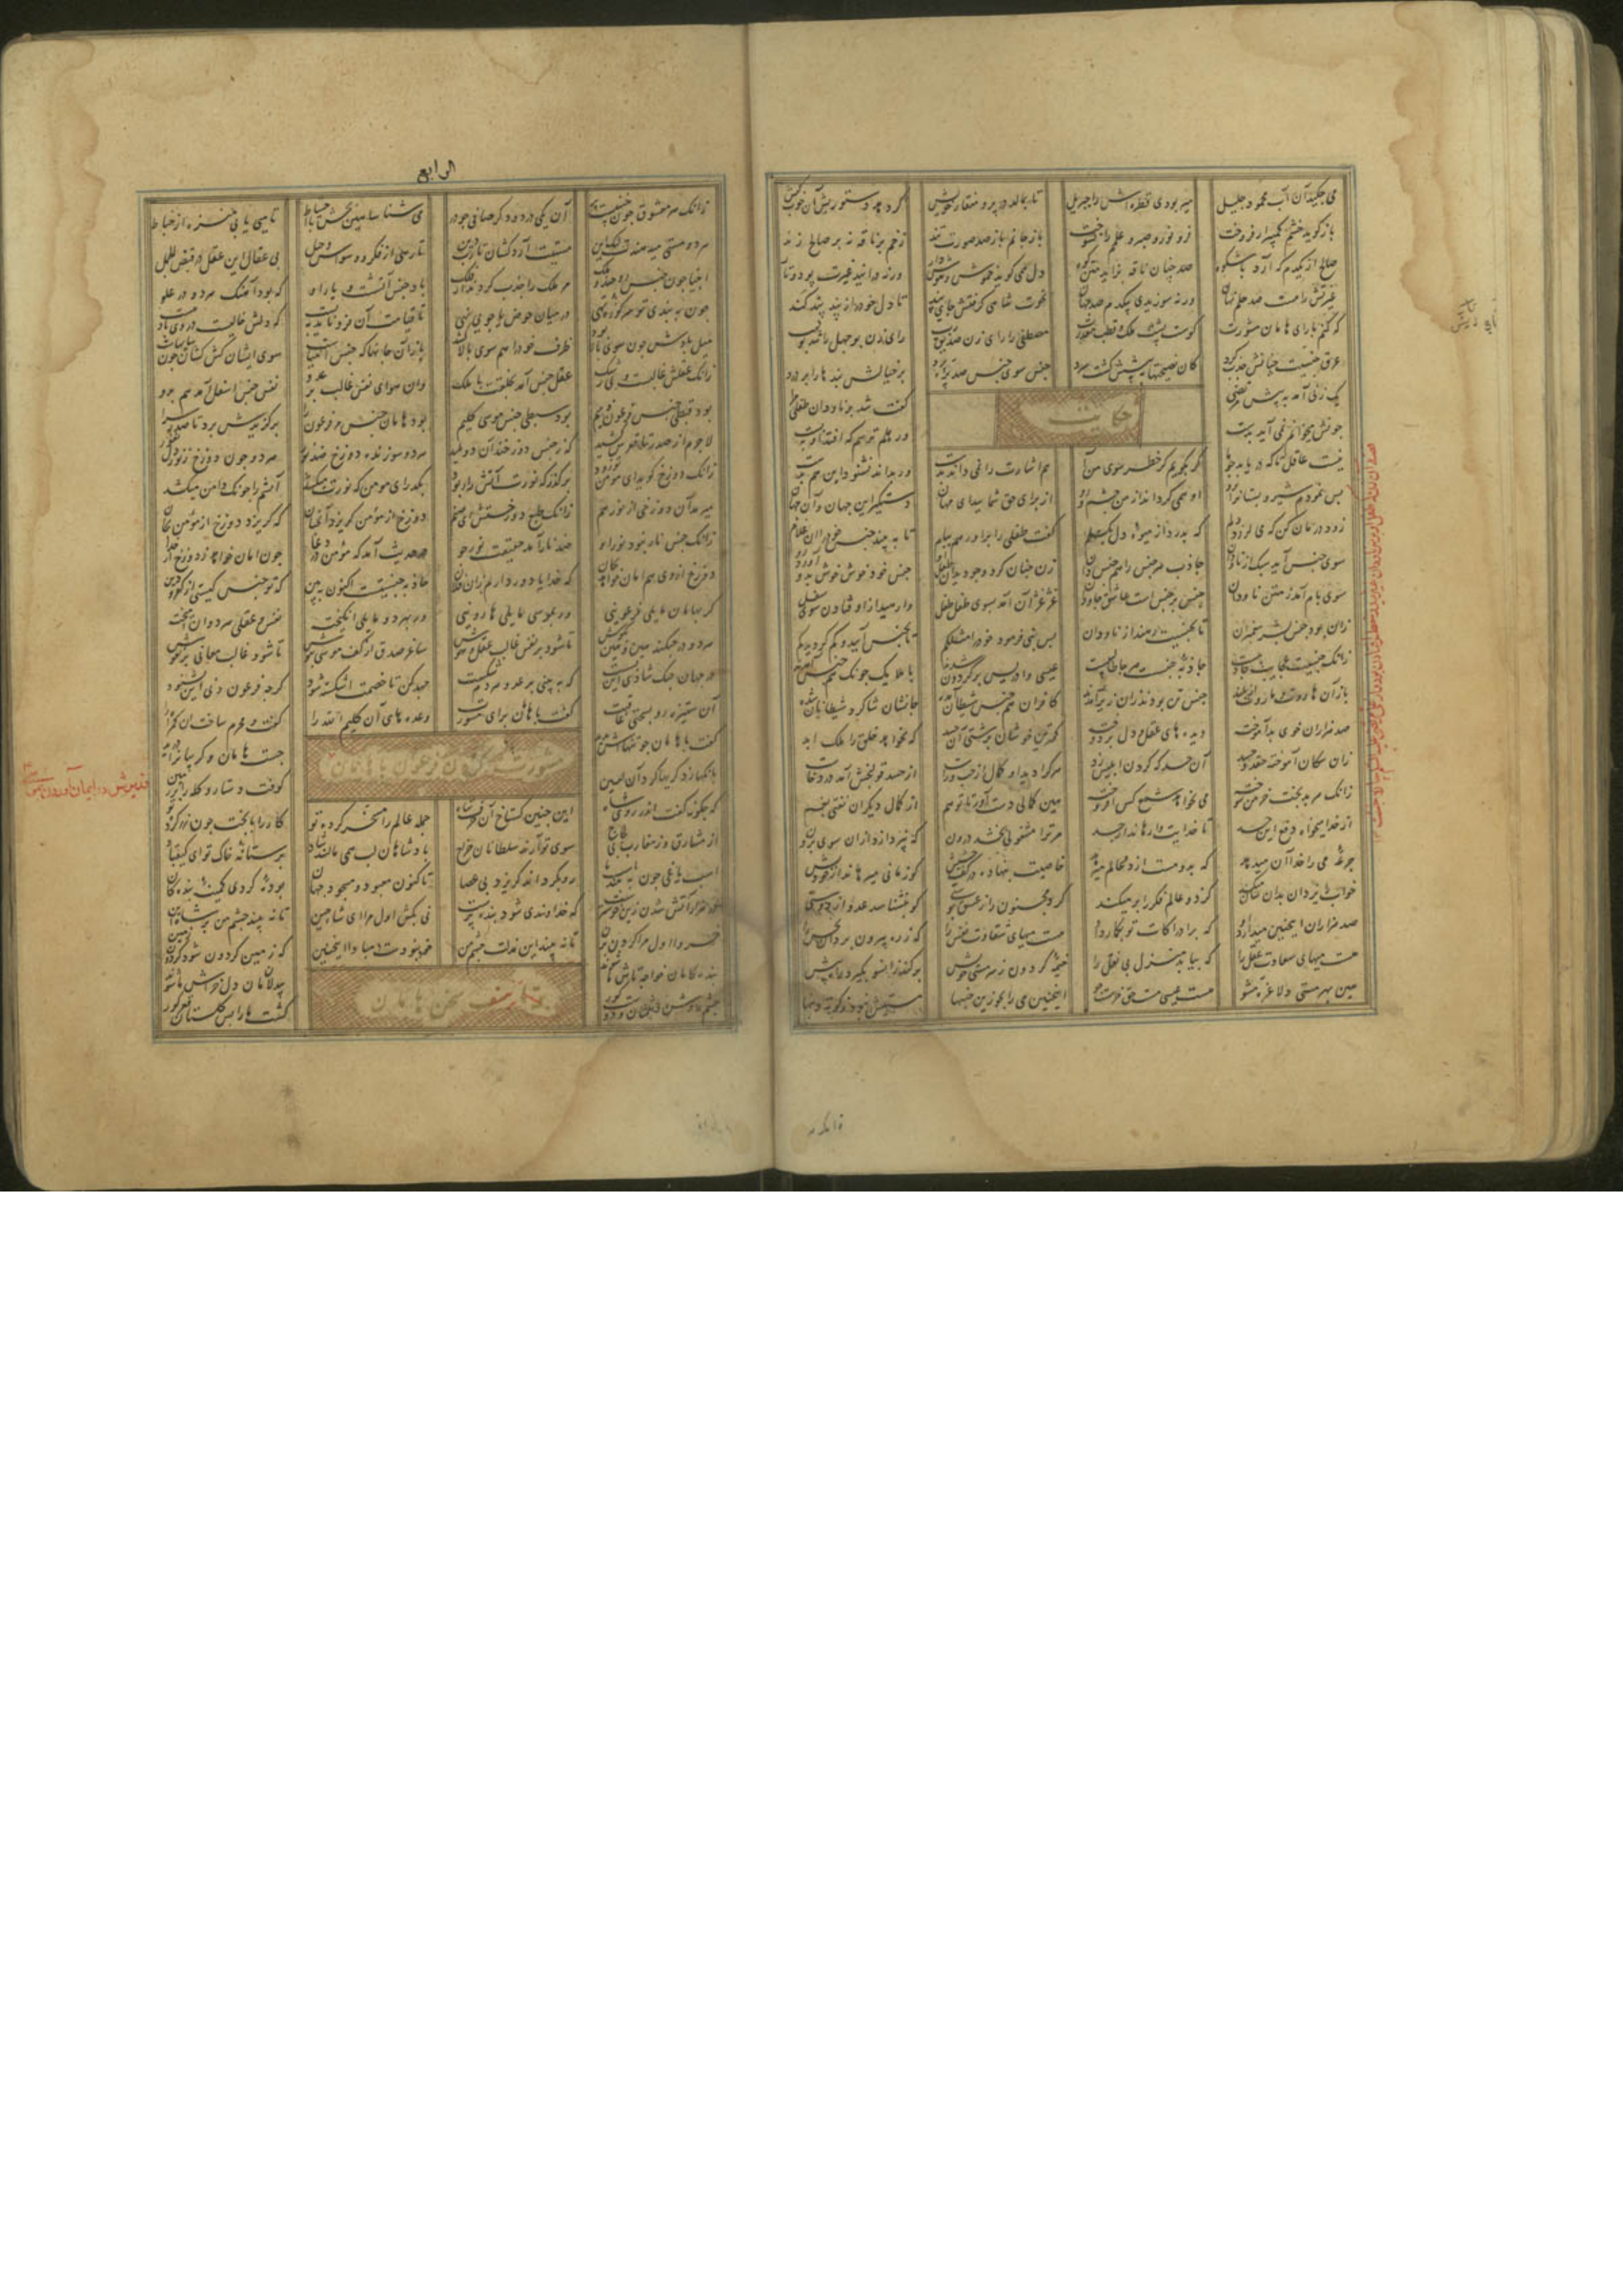 می چکید آن آب محمود جلیل میربودی قطره اش را جبریل تا بمالد در پر و منقار خویش گرچه دستوریش آن خوب کیش
باز گوید خشم کمپیر ار فروخت فر و نور و صبر و علمم را نسوخت باز جانم باز صد صورت تند زخم بر ناقه نه بر صالح زند
صالح از یکدم که آرد باشکوه صد چنان ناقه بزاید متن کوه دل همی گوید خموش و هوش دار ورنه درانید غیرت پود و تار
غیرتش را هست صد حلم نهان ورنه سوزیدی بیکدم صد جهان نخوت شاهی گرفتش جای پند تا دل خود را ز بند پند کند
که کنم با رای هامان مشورت کوست پشت ملک و قطب مقدرت مصطفی را رای زن صدیق رب رای زن بوجهل را شد بولهب
عرق جنسیت چنانش جذب کرد کان نصیحتها به پیشش گشت سرد جنس سوی جنس صد پره پرد بر خیالش بندها را بر درد
یک زنی آمد به پیش مرتضی گفت شد بر ناودان طفلی مرا
حکایت
میخوانم نمی آید بدست ور هلم ترسم که افتد او به پست
نیست عاقل تا که دریابد چو ما گر بگویم کز خطر سوی من آ هم اشارت را نمی داند بدست ور بداند نشنود این هم بدست
بس نمودم شیر و پستان را بدو او همی گرداند از من چشم و رو از برای حق شمایید ای مهان دستگیر این جهان و آن جهان
زود درمان کن که می لرزد دلم که بدرد از میوه دل بگسلم گفت طفلی را برآور هم ببام تا به بیند جنس خود را آن غلام
سوی جنس آید سبک از ناودان جاذب هر جنس را هم جنس دان زن چنان کرد و چو دید آن طفل او جنس خود خوش خوش بدو آورد رو
سوی بام آمد ز متن ناودان جنس بر جنس است عاشق جاودان غژغژان آمد بسوی طفل طفل وارهید از او فتادن سوی سفل
زان بود جنس بشر پیغمبران تا بجنسیت رهند از ناودان پس نبی فرمود خود را مثلکم تا بجنس آیید و کم گردید گم
زانک جنسیت عجایب جاذبیست جاذبه جنسست هر جا طالبیست عیسی و ادریس بر گردون شدند با ملایک چونک هم جنس آمدند
باز آن هاروت و ماروت از بلند جنس تن بودند زان زیر آمدند کافران هم جنس شیطان آمده جانشان شاگرد شیطانان شده
صد هزاران خوی بد آموخته دیده های عقل و دل بر دوخته کمترین خوشان بزشتی آن حسد که نخواهد خلق را ملک ابد
زان سگان آموخته حقد و حسد آن حسد که گردن ابلیس زد هر کرا دید او کمال از چپ و راست از حسد قولنجش آمد درد خاست
زانک هر بدبخت خرمن سوخته می نخواهد شمع کس افروخته هین کمالی دست آور تا تو هم از کمال دیگران نفتی بغم
از خدا میخواه دفع این حسد تا خدایت وارهاند از جسد مر ترا مشغولی بخشد درون که نپردازی از آن سوی برون
جرعه می را خدا آن میدهد که بدو مست از دو عالم میرهد خاصیت بنهاده در کف حشیش کو زمانی میرهاند از خودیش
خواب را یزدان بدان سان میکند کز دو عالم فکر را بر میکند کرد مجنون را ز عشق پوستی کو بنشناسد عدو از دوستی
صد هزاران اینچنین میدارد او که بر ادراکات تو بگمارد او هست میهای شقاوت نفس را که ز ره بیرون برد آن نحس را
هست میهای سعادت عقل را که بیابد منزل بی نقل را خیمه گردون ز سرمستی خویش بر کند زانسو بگیرد راه پیش
هین بهر مستی دلا غره مشو هست عیسی مست حق خر مست جو اینچنین می را بجو زین خنبها مستیش نبود ز کوته دنبها
الرابع
زانک هر معشوق چون خنبیست پر آن یکی درد و دگر صافی چو در می شناسا هین بچش با احتیاط تا میی یابی منزه ز اختلاط
هر دو مستی میدهندت لیک این مستیت آرد کشان تا رب دین تا رهی از فکر و وسواس و حیل بی عقال این عقل در رقص الجمل
انبیا چون جنس روحند و ملک مر ملک را جذب کردند از فلک باد جنس آتشست و یار او که بود آهنگ هر دو بر علو
چون به بندی تو سر کوزه تهی در میان حوض یا جوی نهی تا قیامت آن فرو ناید به پست که دلش خالیست در وی باد هست
میل بادش چون سوی بالا بود ظرف خود را هم سوی بالا کشد باز آن جانها که جنس انبیاست سوی ایشان کش کشان چون سایهاست
زانک عقلش غالبست و بی ز شک عقل جنس آمد بخلقت با ملک وان هوای نفس غالب بر عدو نفس جنس اسفل آمد شد بدو
بود قبطی جنس فرعون ذمیم بود سبطی جنس موسی کلیم بود هامان جنس تر فرعون را برگزیدش برد تا صدر سرا
لاجرم از صدر تا قعرش کشید که ز جنس دوزخند آن دو پلید هر دو سوزنده چو دوزخ ضد نور هر دو چون دوزخ ز نور دل نفور
زانک دوزخ گوید ای مؤمن تو زود برگذر که نورت آتش را ربود بگذر ای مومن که نورت میکشد آتشم را چونک دامن میکشد
میرمد آن دوزخی از نور هم زانک طبع دوزخستش ای صنم دوزخ از مؤمن گریزد آنچنان که گریزد مؤمن از دوزخ بجان
زانک جنس نار نبود نور او ضد نار آمد حقیقت نورجو در حدیث آمد که مؤمن در دعا چون امان خواهد ز دوزخ از خدا
دوزخ از وی هم امان خواهد بجان که خدایا دور دارم از فلان جاذبه جنسیتست اکنون به بین که تو جنس کیستی از کفر و دین
گر بهامان مایلی فرعونی ور بموسی مایلی هارونیی ور بهر دو مایلی انگیخته نفس و عقلی هر دوان آمیخته
هر دو در جنگند تا شود بر نفس غالب عقل و هوش ساغر صدق از کف موسی بنوش تا شود غالب معانی بر نقوش
در جهان جنگ شادی این بسست که به بینی بر عدو هر دم شکست جهد کن تا خصمت اشکسته شود گرچه فرعون دنی این نشنود
آن ستیزه رو بسختی عاقبت گفت با هامان برای مشورت وعده های آن کلیم الله را گفت و محرم ساخت آن گمراه را
مشورت کردن فرعون با هامان
گفت با هامان چو تنهاش بدید جست هامان و گریبان را درید
بانگها زد گریها کرد آن لعین کوفت دستار و کله را بر زمین
که چگونه گفت اندر روی شاه این چنین گستاخ آن حرف تباه جمله عالم را مسخر کرده تو کار را با بخت چون زر کرده تو
از مشارق وز مغارب بی لجاج سوی تو آرند سلطانان خراج پادشاهان لب همی مالند شاد بر ستانه خاک تو ای کیقباد
اسب یاغی چون به بیند اسب ما رو بگرداند گریزد بی عصا تاکنون معبود و مسجود جهان بوده گردی کمینه بندگان
در هزار آتش شدن زین خوشترست که خداوندی شود بنده پرست نی بکش اول مرا ای شاه چین تا نه بیند چشم من بر شاه این
خسروا اول مرا گردن بزن تا نه بیند این مذلت چشم من خود نبودست و مبادا اینچنین که زمین گردون شود گردون زمین
بندگانمان خواجه تاش ما شوند بیدلانمان دلخراش ما شوند
تزییف سخن هامان
چشم روشن دشمنان و دوست کور گشت ما را پس گلستان قعر گور